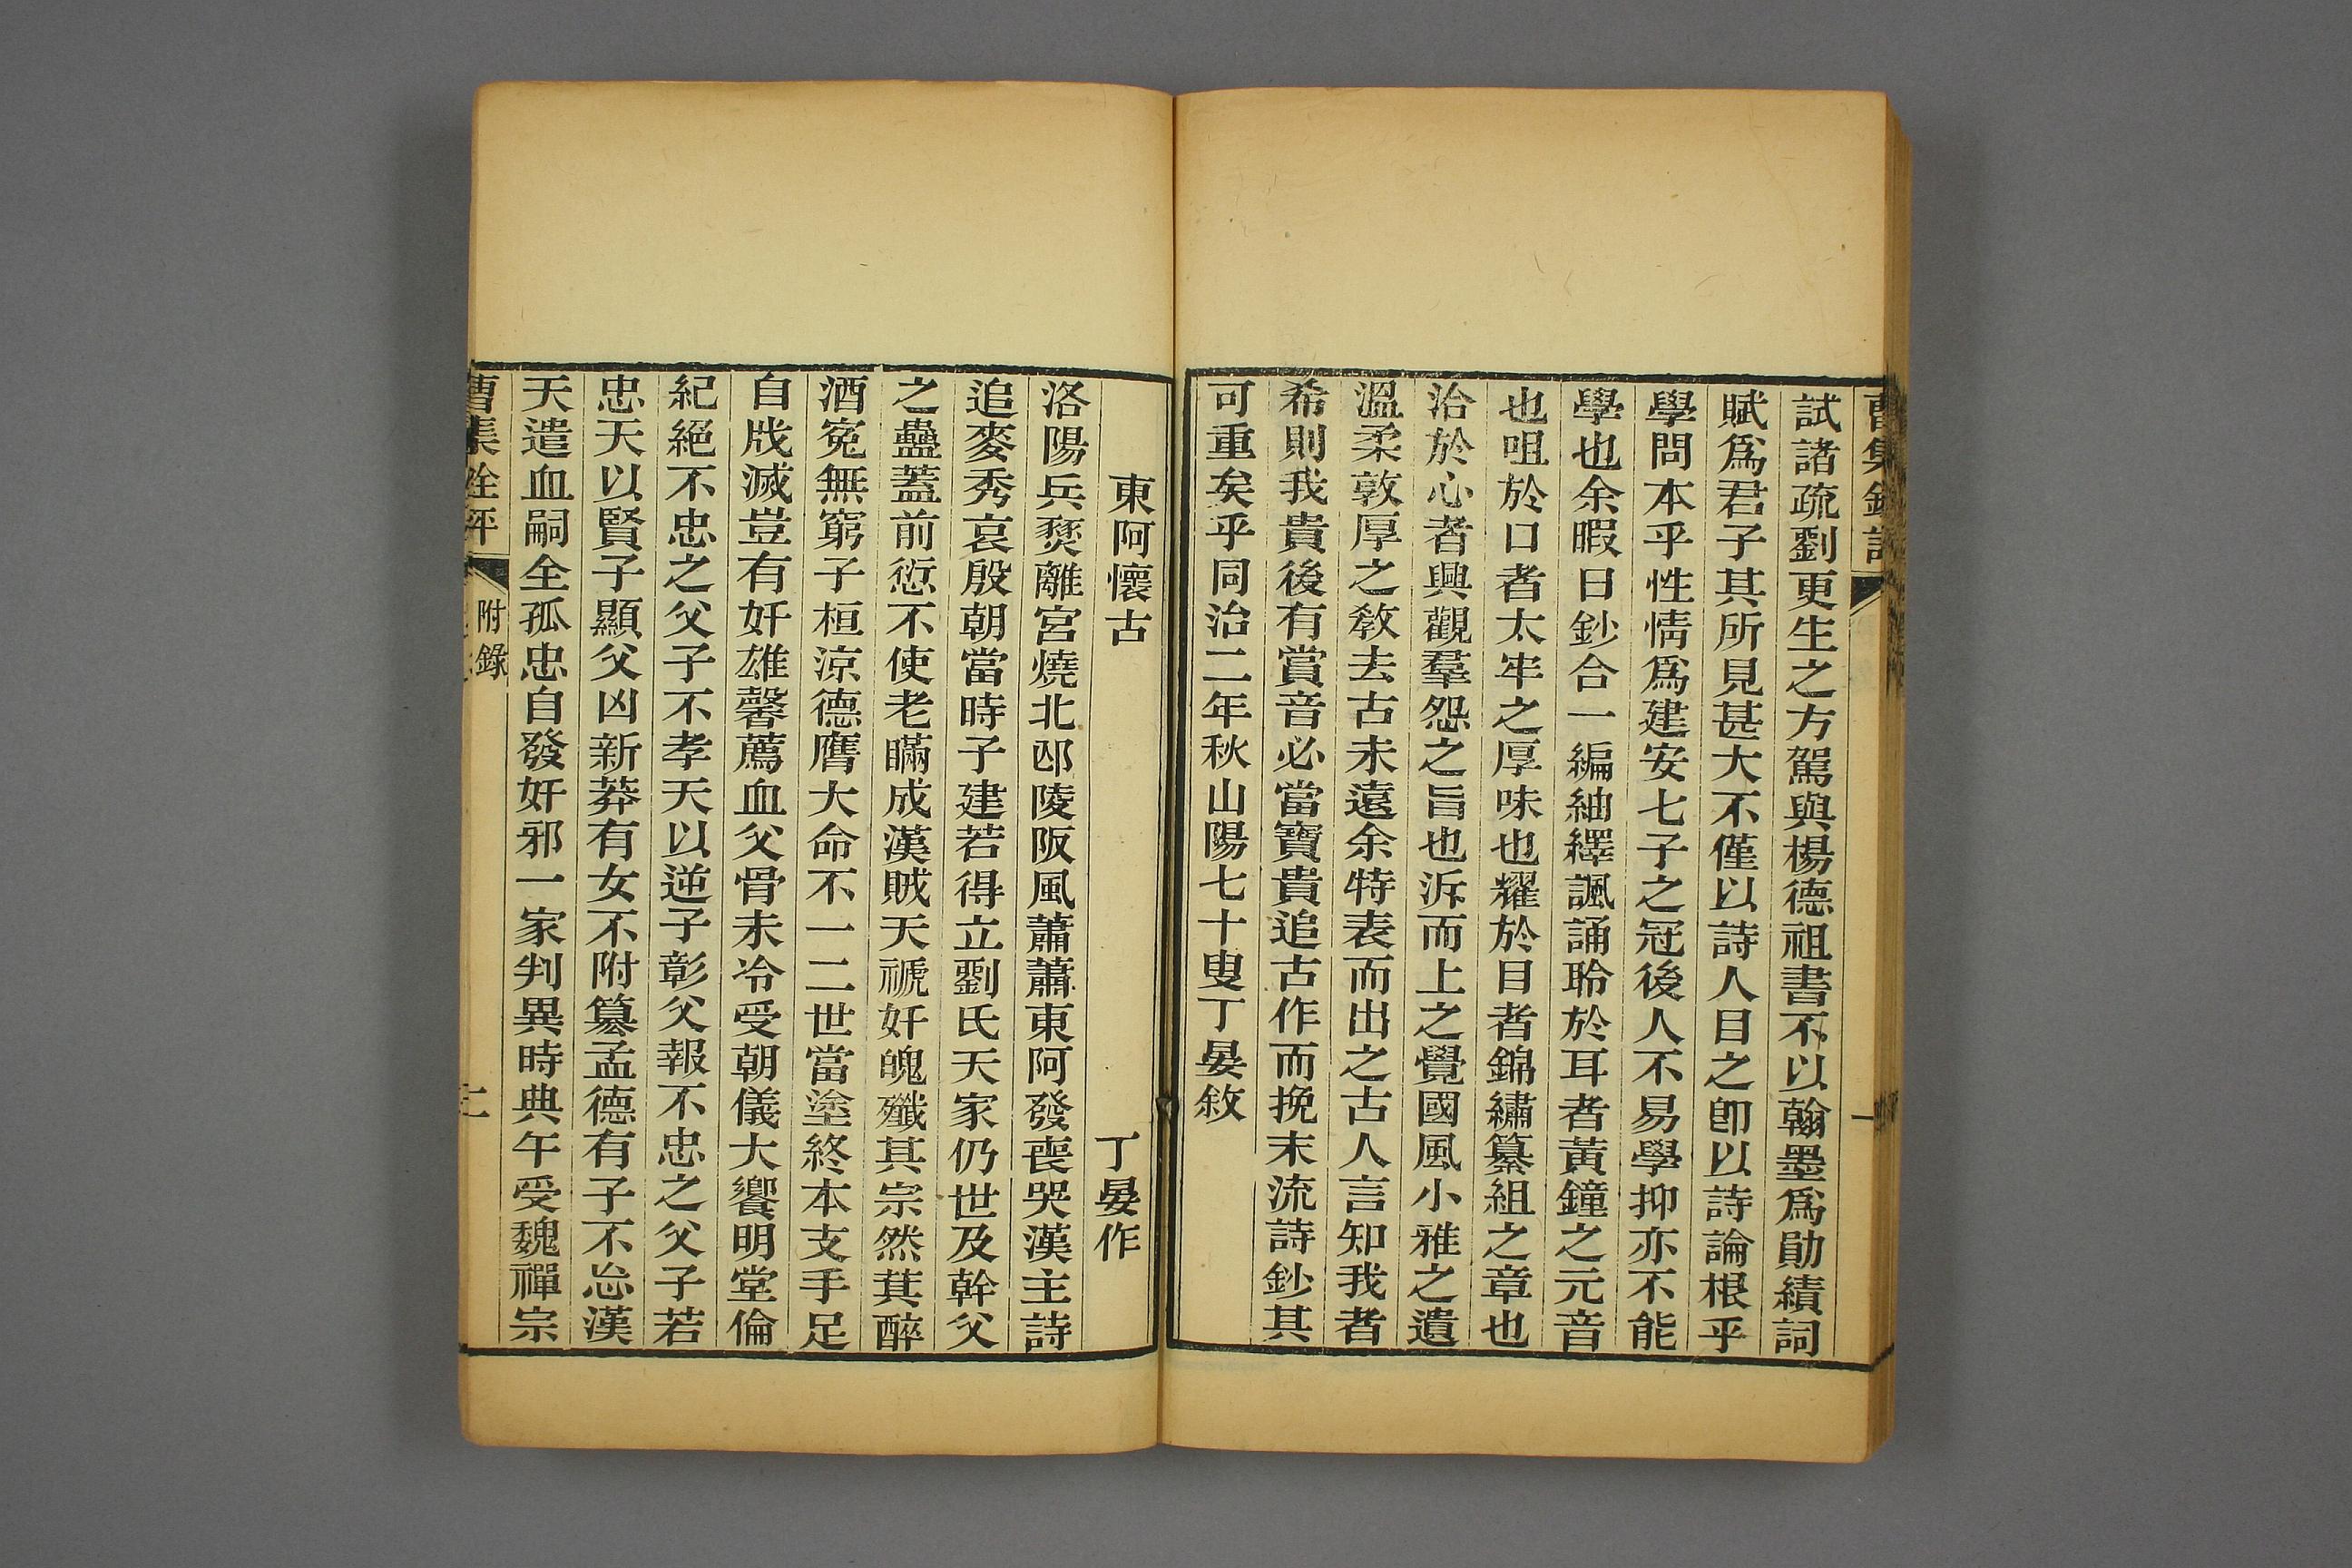 曹集
一
試諸疏劉更生之方駕與楊德祖書不以翰墨爲勛績詞
賦爲君子其所見甚大不僅以詩人目之卽以詩論根乎
學問本乎性情爲建安七子之冠後人不易學抑亦不能
學也余暇日鈔合一編紬繹諷誦聆於耳者黃鐘之元音
也咀於口者太牢之厚味也耀於目者錦繡纂組之章也
洽於心者興觀羣怨之旨也泝而上之覺國風小雅之遺
溫柔敦厚之敎去古未遠余特表而出之古人言知我者
希則我貴後有賞音必當寶貴追古作而挽末流詩鈔其
可重矣乎同治二年秋山陽七十叟丁晏敘
東阿懷古
丁晏作
洛陽兵燹離宮燒北邙陵阪風蕭蕭東阿發喪哭漢主詩
追麥秀哀殷朝當時子建若得立劉氏天家仍世及幹父
之蠱蓋前愆不使老瞞成漢賊天禠奸魄殲其宗然萁醉
酒寃無窮子桓涼德膺大命不一二世當塗終本支手足
自戕滅豈有奸雄馨薦血父骨未冷受朝儀大饗明堂倫
紀絕不忠之父子不孝天以逆子彰父報不忠之父子若
忠天以賢子顯父凶新莽有女不附篡孟德有子不忘漢
天遣血嗣全孤忠自發奸邪一家判異時典午受魏禪宗
曹集銓評
附錄
二